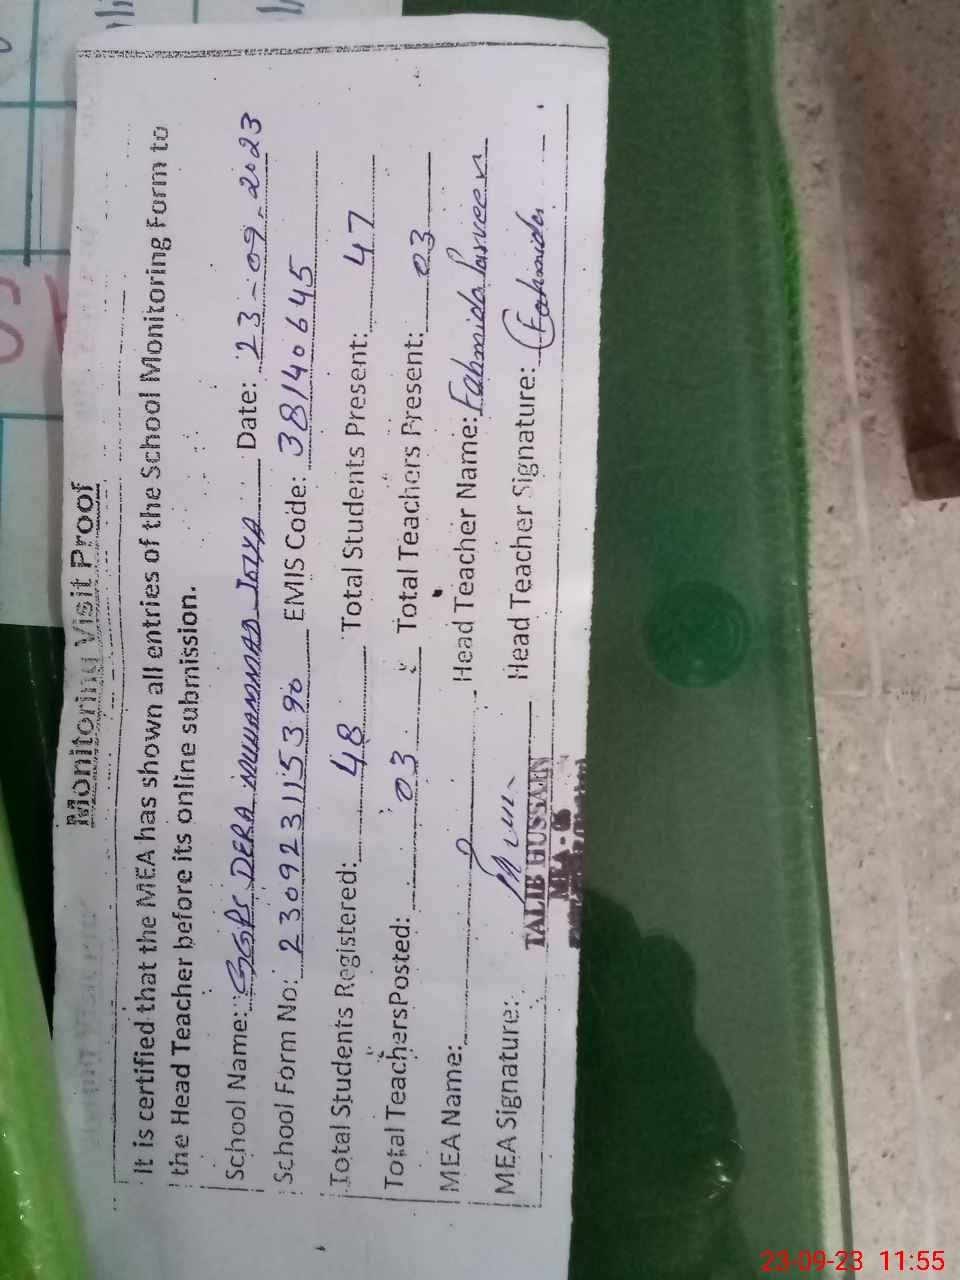 Monitoring Visit Proof
It is certified that the MEA has shown all entries of the School Monitoring Form to
the Head Teacher before its online submission.
School Name: GGPS DERA MUHAMMAD JOIYA Date: 23-09-2023
School Form No: 23092311539 EMIS Code: 38140645
Total Students Registered: 48 Total Students Present: 47
Total TeachersPosted: 03 Total Teachers Present: 03
MEA Name: Head Teacher Name: Fahmida Parveen
MEA Signature: Head Teacher Signature: Fahmida
TALIB HUSSAIN
MEA - 06
23-09-23 11:55